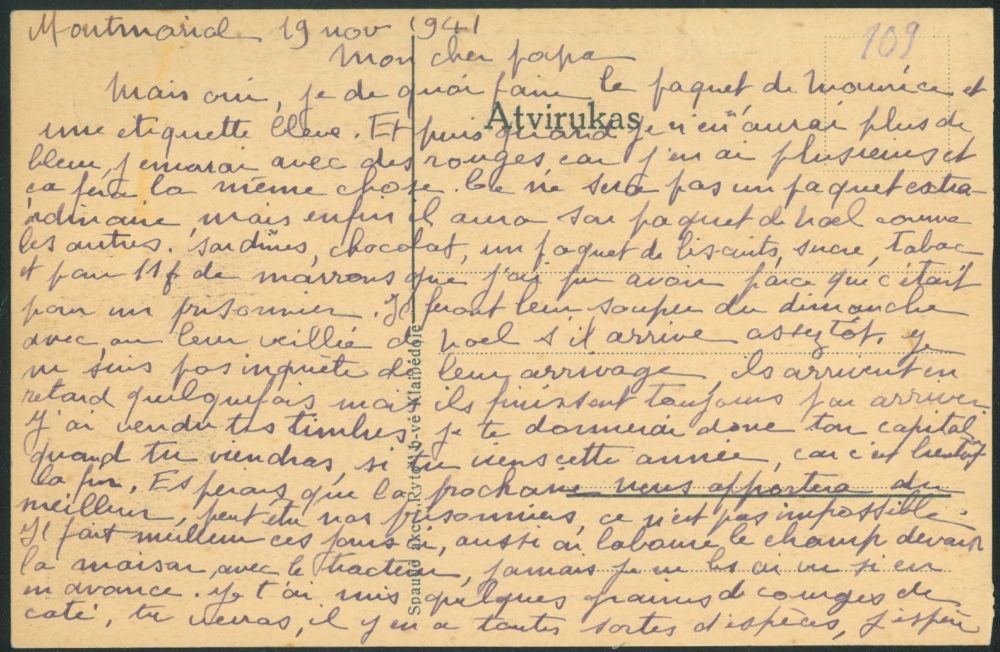 Montmarial 19 nov 1941
109
Mon cher papa
Mais oui, je de quoi faire le paquet de Maurice et
une etiquette bleue. Et puis quand je n'en aurai plus de
Atvirukas
bleu, j'enverai avec des rouges, car j'en ai plusieurs et
ca fera la même chose. Ce ne sera pas un paquet extra-
ordinaire, mais enfin il aura son paquet de noel comme
les autres. Sardines, chocolat, un paquet de biscuits, sucre, tabac
et pour 11f de marrons que j'ai pu avoir parce que c'était
pour un prisonnier. Ils feront leur souper du dimanche
avec, ou leur veillée de noel s'il arrive assez tôt. Je
ne suis pas inquiète de leur arrivage, ils arrivent en
retard quelquefois mais ils finissent toujours par arriver
J'ai vendu tes timbres, je te donnerai donc ton capital
quand tu viendras, si tu viens cette année, car c'est bientôt
la fin. Esperons que la prochaine nous apportera du
meilleur, peut etre nos prisonniers, ce n'est pas impossible.
Il fait meilleur ces jours ci, aussi ai labouré le champ devant
la maison, avec le tracteur, jamais je ne les ai vu si en
n avance. Je t'ai mis quelques graines de courges de
coté, tu verras, il y en a toutes sortes d'espèces, j'espère
Spaudė akc. „Ryto“ b-vė Klaipėdoje